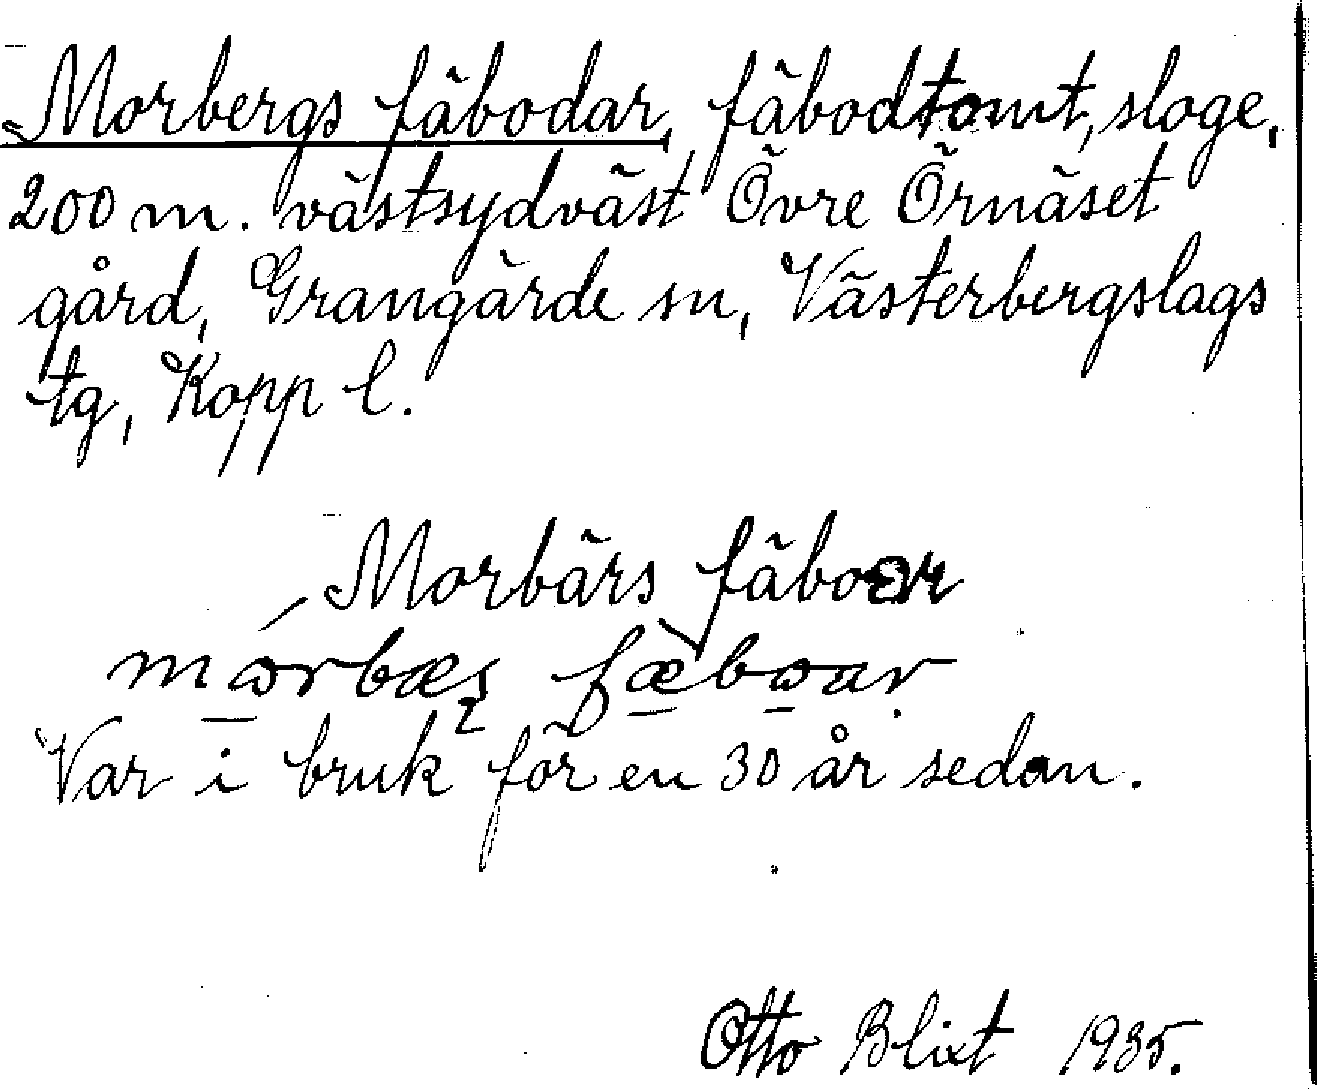 Morbergs fäbodar, fäbodtomt, sloge,
200 m. västsydväst Övre Örnäset
gård, Grangärde sn, Västerbergslags
tg, Kopp l.
Morbärs fäboar
mɷrbæʂ fæbɷar
Var i bruk för en 30 år sedan.
Otto Blixt 1935.